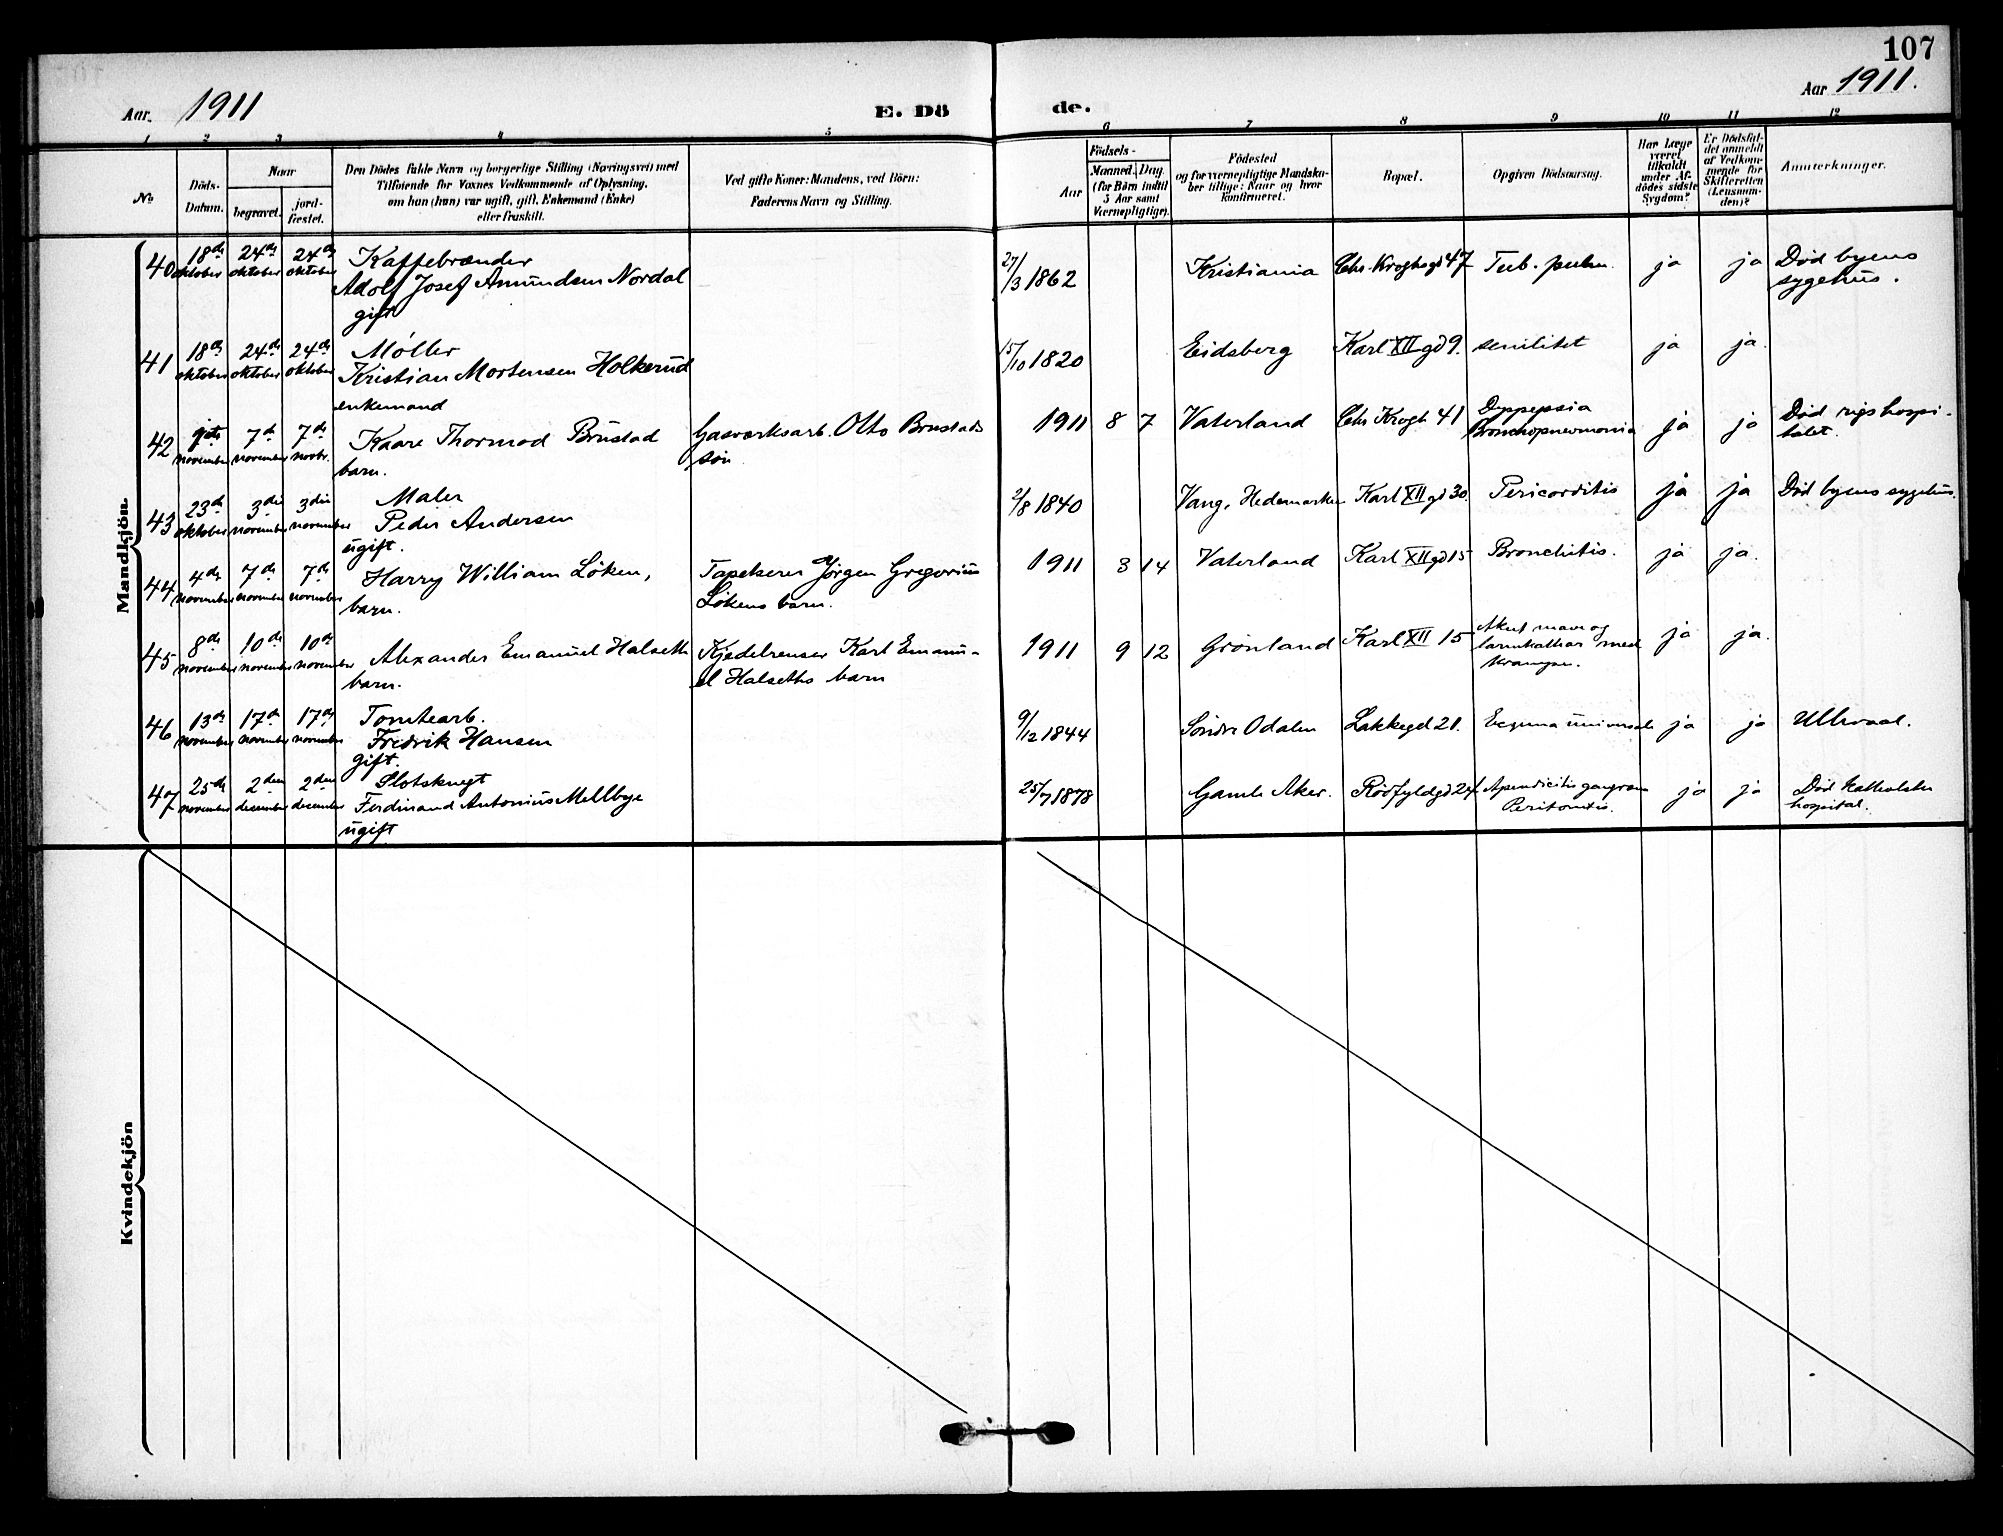 107
Aar. 1911
E. Dö
de.
Aar 1911.
1 2 3 4 5 6 7 8 9 10 11 12
No
Döds-
Datum.
Naar
begravet.
jord-
fæstet.
Den Dödes fulde Navn og borgerlige Stilling (Næringsvei) med
Tilföiende for Voxnes Vedkommende af Oplysning,
om han (hun) var ugift, gift, Enkemand (Enke)
eller fraskilt.
Ved gifte Koner: Mandens, ved Börn:
Faderens Navn og Stilling.
Födsels-
Aar
Maaned. Dag.
(for Börn indtil
5 Aar samt
Værnepligtige).
Födested
og for værnepligtige Mandska-
ber tillige: Naar og hvor
konfirmeret.
Bopæl.
Opgiven Dödsaarsag.
Har Læge
været
tilkaldt
under Af-
dödes sidste
Sygdom?
Er Dödsfal-
det anmeldt
af Vedkom-
mende for
Skifteretten
(Lensman-
den)?
Anmærkninger.
Mandkjön.
40 18de oktober 24de oktober 24de oktober Kaffebrænder
Adolf Josef Amundsen Nordal
gift
27/3 1862 Kristiania Chr. Kroghsgd 47 Tub. pulm. ja ja Död byens
sygehus.
41 18de oktober 24de oktober 24de oktober Møller
Kristian Mortensen Holkerud
enkemand
15/10 1820 Eidsberg Karl XII gd 9. senilitet ja ja.
42 november 7de november 7de novbr. Kaare Thormod Brustad
barn.
Gasværksarb. Otto Brustads
søn
1911 8 7 Vaterland Chr Krogh 41 Dyspepsia
Bronchopneumonia ja ja Död rigshospi-
talet.
43 23de oktober 3die november 3die november Maler
Peder Andersen
ugift.
2/8 1840 Vang, Hedemarken Karl XII gd 30. Pericarditis ja ja Död byens sygehus.
44 4de november 7de november 7de november Harry William Løken,
barn.
Tapetserer Jørgen Gregorius
Løkens barn.
1911 3 14 Vaterland Karl XII gd 15 Bronchitis. ja ja.
45 8de november 10de november 10de november Alexander Emanuel Halseth
barn.
Kjedelrenser Karl Emanu-
el Halseths barn
1911 9 12 Grønland Karl XII 15 Akut mave og
tarmkathar med
krampe. ja ja.
46 13de november 17de november 17de november Tomtearb.
Fredrik Hansen
gift.
9/12 1844 Søndre Odalen Lakkegd 21. ja ja Ullevaal.
47 25de november 2den december 2den december Slotsknegt
Ferdinand Antonius Mellbye
ugift
25/7 1878 Gamle Aker. Apendicitis gangræn
Peritonitis. ja ja Död Katholske
hospital.
Kvindekjön